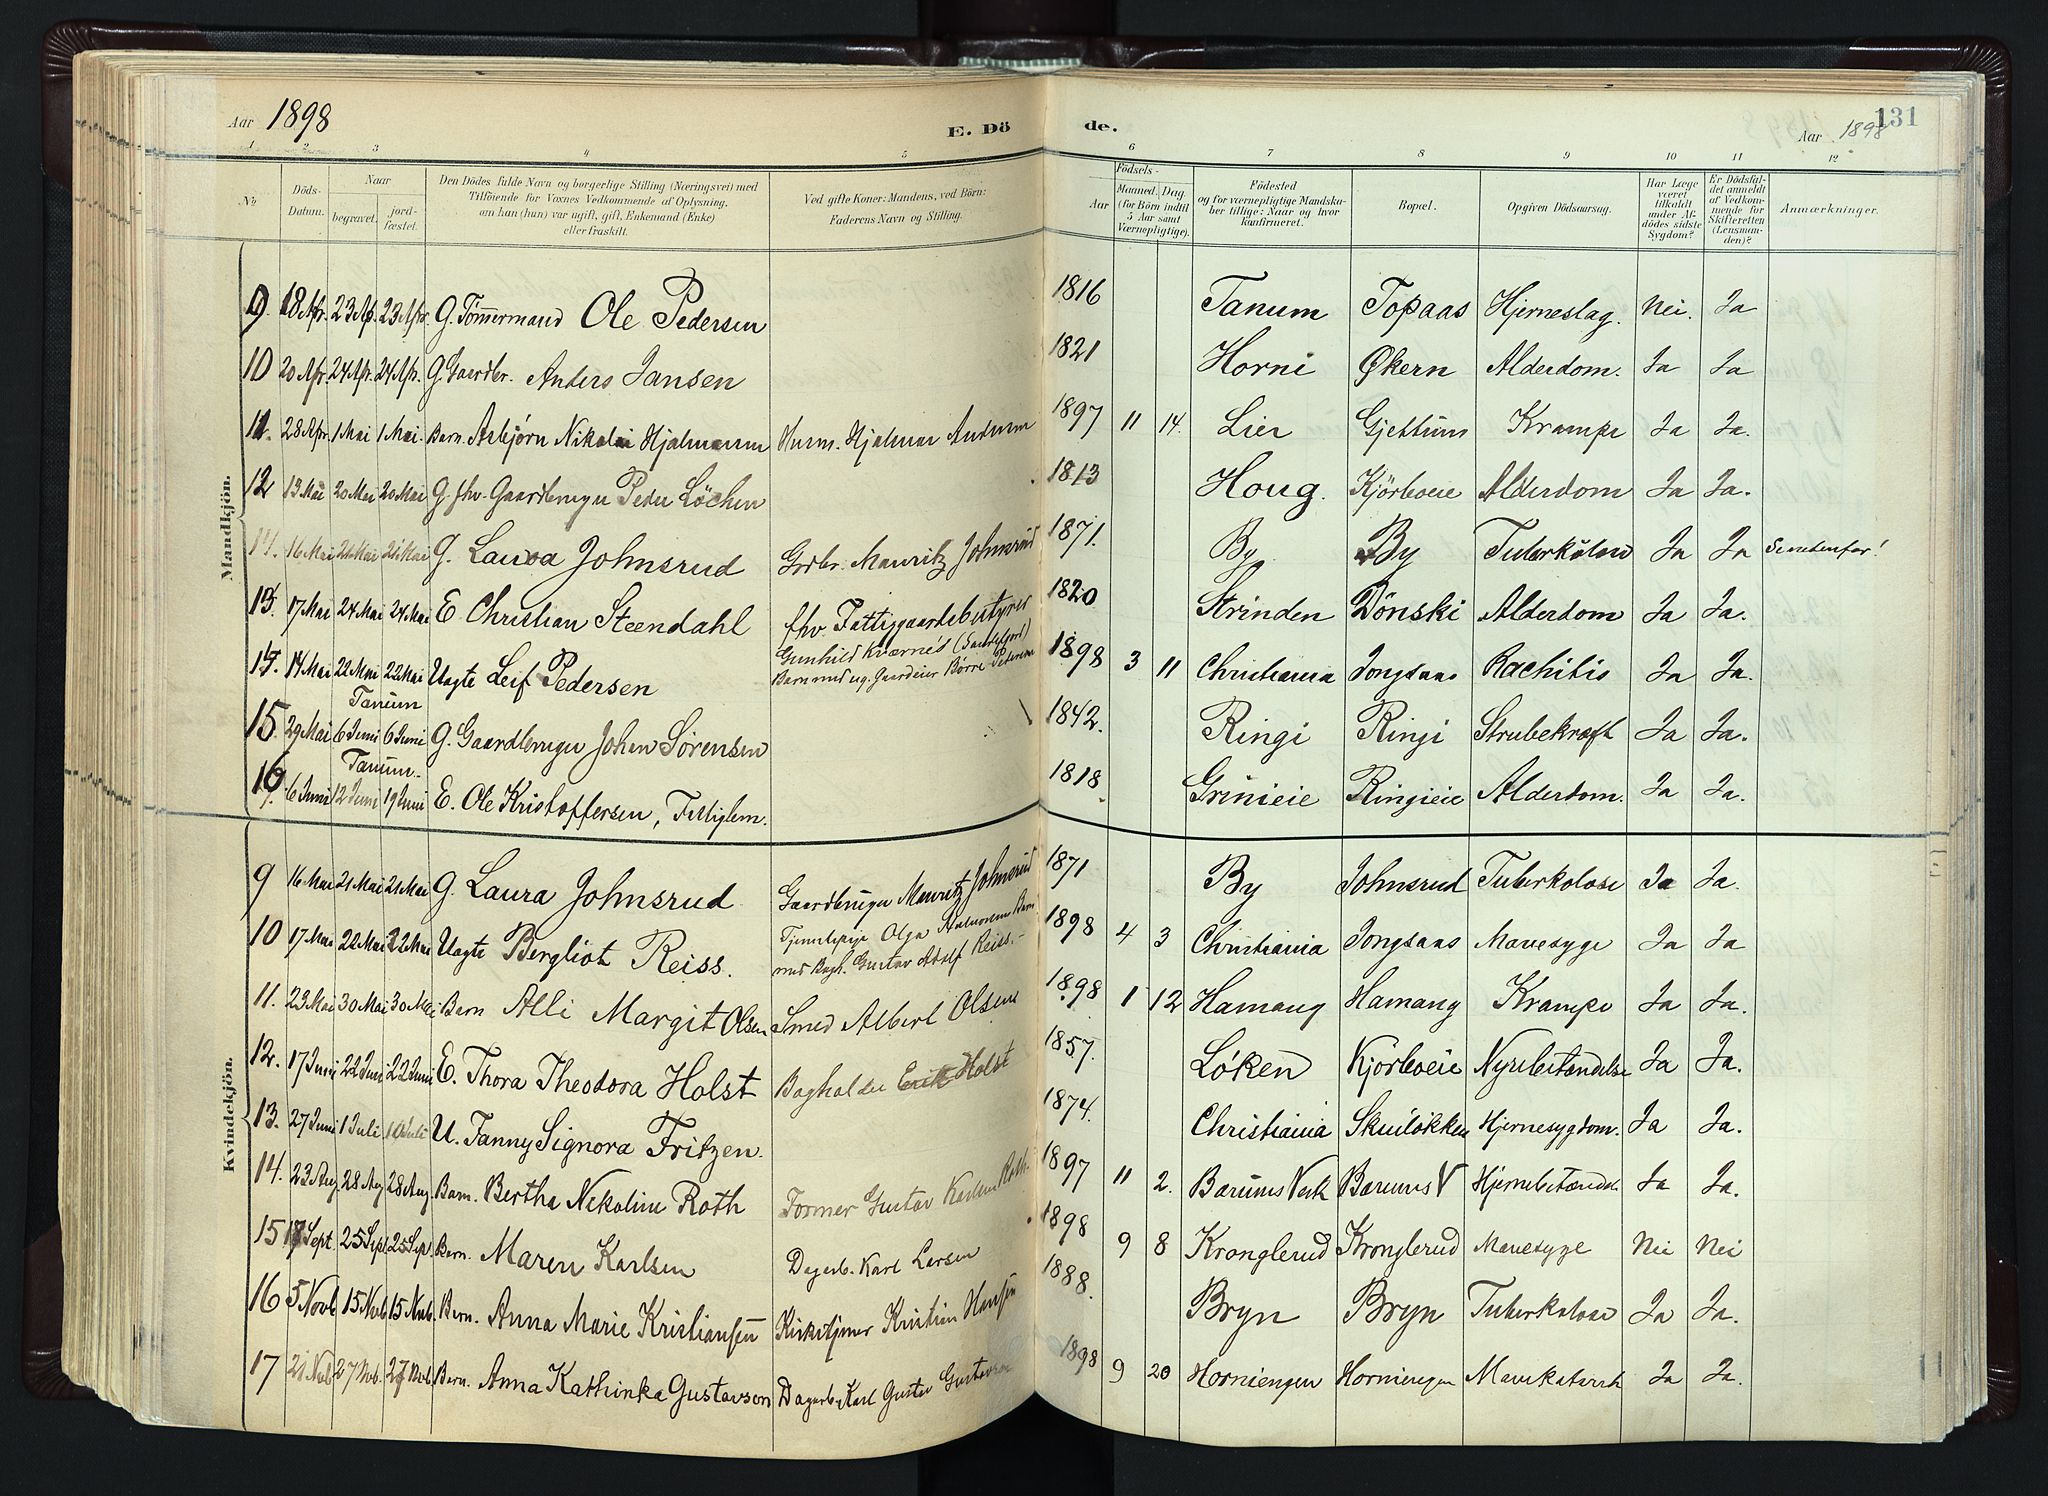 Aar 1898
E. Döde.
Aar 1898
131
1 2 3 4 5 6 7 8 9 10 11 12
No
Döds-Datum.
Naar
begravet.
jord-fæstet.
Den Dödes fulde Navn og borgerlige Stilling (Næringsvei) med
Tilföiende for Voxnes Vedkommende af Oplysning,
om han (hun) var ugift, gift, Enkemand (Enke)
eller fraskilt.
Ved gifte Koner: Mandens, ved Börn:
Faderens Navn og Stilling.
Födsels-
Aar
Maaned. Dag.
(for Börn indtil
5 Aar samt
Værnepligtige).
Födested
og for værnepligtige Mandska-
ber tillige: Naar og hvor
konfirmeret.
Bopæl.
Opgiven Dödsaarsag.
Har Læge
været
tilkaldt
under Af-
dödes sidste
Sygdom?
Er Dödsfal-
det anmeldt
af Vedkom-
mende for
Skifteretten
(Lensman-
den)?
Anmærkninger.
Mandkjön.
9. 18 Apr. 23 Ap. 23 Apr. G. Tömmermand Ole Pedersen 1816 Tanum Topaas Hjerneslag. Nei. Ja
10 20 Apr. 24 Apr. 24 Apr. G. Gaardbr. Anders Jansen 1821 Horni Økern Alderdom. Ja Ja
11. 28 Apr. 1 Mai 1 Mai. Barn. Asbjörn Nikolai Hjalmarsen Husm. Hjalmar Andersen 1897 11 14. Lier Gjettum Krampe Ja Ja.
12 13 Mai 20 Mai 20 Mai G. fhv. Gaardbruger Peder Löchen 1813 Houg. Kjörboeie Alderdom Ja Ja.
16 Mai 21 Mai 21 Mai G. Laura Johnsrud Grdbr. Mauritz Johnsrud 1871. By By Tuberkulose Ja Ja Senedenfor!
13. 17 Mai 24 Mai 24 Mai E Christian Steendahl fhv. Fattiggaardsbestyrer 1820 Strinden Dönski Alderdom Ja Ja.
14. 14 Mai 22 Mai 22 Mai Uægte Leif Pedersen Gunhild Kværnes (Sandefjord)
Barn med ug. Gaardeier Börre Pedersen 1898 3 11 Christiania Jongsaas Rachitis Ja Ja.
Tanum
15. 29 Mai 6 Juni 6 Juni G. Gaardbruger Johan Sörensen 1842. Ringi Ringi Strubekræft Ja Ja.
Tanum
16 6 Juni 12 Juni 19 Juni E. Ole Kristoffersen, Fattiglem. 1818 Grinieie Ringieie Alderdom. Ja Ja.
Kvindekjön.
9 16 Mai 21 Mai 21 Mai G. Laura Johnsrud Gaardbruger Mauritz Johnsrud 1871 By Johnsrud Tuberkolose Ja Ja.
10 17 Mai 22 Mai 22 Mai Uægte Bergliot Reiss. Tjenestepige Olga Barn
med Bogh. Gustav Adolf Reiss. 1898 4 3 Christiania Jongsaas Mavesyge Ja Ja
11. 23 Mai 30 Mai 30 Mai Barn Alli Margit Olsen Smed Albert Olsen 1898 1 12 Hamang Hamang Krampe Ja Ja.
12. 17 Juni 22 Juni 22 Juni E. Thora Theodora Holst Bogholder Erik Holst 1857. Løken Kjörboeie Nyrebetændelse Ja Ja.
13. 27 Juni 1 Juli 10 Juli U. Fanny Signora Fritzen. 1874. Christiania Skuilökken Hjernesygdom. Ja Ja.
14. 23 Aug 28 Aug 28 Aug. Barn. Bertha Nikoline Roth Former Gustav Karlsen Roth. 1897 11 2. Bærums Verk Bærums V Hjernebetændel. Ja Ja.
15 18 Sept. 25 Sep. 25 Sep. Barn. Maren Karlsen Dagarb. Karl Larsen 1898 9 8 Kronglerud Kronglerud Mavesyge Nei Nei
16 5 Novb 15 Novb 15 Novb. Barn. Anna Marie Kristiansen Kirketjener Kristian Hansen 1888. Bryn Bryn Tuberkolose Ja Ja.
17 21 Nvb 27 Nvb. 27 Nvb. Barn. Anna Kathinka Gustavson Dagarb. Karl Gustav Gustavson 1898 9 20 Horniengen Horniengen Mavekatarrh Ja Ja.